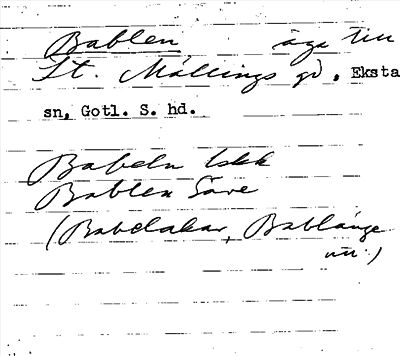 Bablen äga till
St. Mällings gd, Eksta
sn, Gotl. S. hd.
Babeln Lskk
Bablen Säve
(Babelakar, Bablänge
m.)